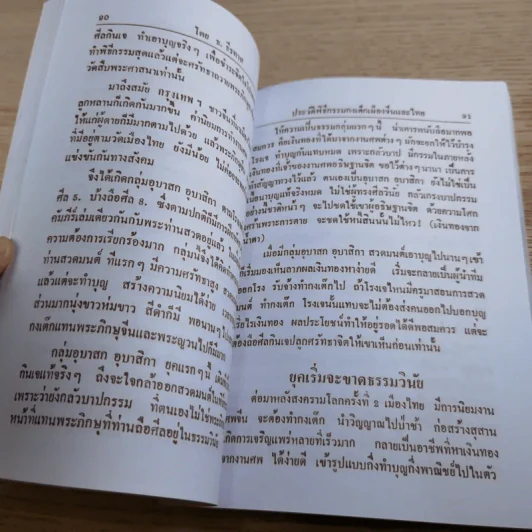 ๑๐ โดย ช. ธีรทาส
ศีลกินเจ ทำเอาบุญจริง ๆ
ทำพิธีกรรมสุดแล้วแต่จะศรัทธาถวาย
วัดสืบพระศาสนาเท่านั้น
มาถึงสมัย กรุงเทพ ฯ ชาวจีน
ลูกหลานก็เกิดกันมากขึ้น ค่านิยมการทำ
ให้แก่ผู้ตายก็มีมากตามไปด้วย แล้วพระ
ที่มีอยู่ตามวัดเมืองไทย ยังมีน้อย ไม่
แข่งขันกันทางสังคม
จึงได้เกิดกลุ่มอุบาสก อุบาสิกา
ศีล 5. บ้างถือศีล 8. ซึ่งตามปกติมี
คัมภีร์เล่มเดียวกันกับพระท่านสวดอยู่แล้ว
ความต้องการเรียกร้องมาก กลุ่มนี้จึงได้
ท่านสวดมนต์ ที่แรก ๆ มีความศรัทธาสูง
แล้วแต่จะทำบุญ สร้างความนิยมได้ง่าย
ส่วนมากนุ่งขาวห่มขาว สีดำก็มี พอนาน ๆ
กงเต๊กแทนพระภิกษุจีนและพระญวนไปก็มีมาก
กลุ่มอุบาสก อุบาสิกา ยุคแรก ๆ นี้
กินเจแท้จริง ๆ ถึงจะใจกล้าออกสวดมนต์ใน
เพราะว่ายังกลัวบาปกรรม ที่ตนเองไม่ใช่พระ
หน้าที่แทนพระภิกษุที่ท่านถือศีลอยู่ในธรรมวินัย
ประวัติพิธีกรรมกงเต็กเมืองจีนและไทย ๑๑
ให้ความเป็นธรรมกลุ่มแรก ๆ นี้ น่าเคารพนับถือมากพอ
สมควร คือเงินทองที่ได้มาจากงานศพต่าง ๆ มักจะอกให้ไว้บำรุง
โรงเจ ทำบุญกันแทบหมด เพราะกลัวบาป มีกรรมในภายหลัง
เงินทองที่เจ้าของงานศพอธิษฐานจิต ขอไว้ต่าง ๆ นานา เป็นการ
ทำสัญญาทวงไว้แล้ว ตนเองเป็นอุบาสก อุบาสิกา ยังไม่ใช่เป็น
บุญแท้จริงหมด ไม่ใช่ผู้ทรงศีลวินัย กลัวกรงบาปกรรม
จะไปชดใช้เขาผู้อธิษฐานจิต ด้วยความโศก
เศร้าเพราะการตาย จะชดใช้หนี้สินนั้นไม่ไหว! (เงินทองจาก
น้ำตา)
เมื่อมีกลุ่มอุบาสก อุบาสิกา สวดมนต์เอาบุญไปนาน ๆ เข้า
เริ่มมองเห็นลาภผลเงินทองหาง่ายดี เริ่มจะกลายเป็นผู้นำทีม
ออกโรง รับจ้างทำกงเต๊กไป ถ้าโรงเจไหนมีครูมาสอนการสวด
มนต์ ทำกงเต๊ก โรงเจนั้นแทบจะไม่ต้องส่งคนออกไปบอกบุญ
เรี่ยไรเงินทอง ผลประโยชน์ทำให้อยู่รอดได้ดีพอสมควร แต่จะ
ต้องถือศีลกินเจปลูกศรัทธาจิตให้เขาเห็นก่อนเท่านั้น
ยุคเริ่มจะขาดธรรมวินัย
ต่อมาหลังสงครามโลกครั้งที่ ๒ เมืองไทย มีการนิยมงาน
จีน จะต้องทำกงเต๊ก นำวิญญาณไปป่าช้า ก่อสร้างสุสาน
เกิดการเจริญแพร่หลายที่เร็วมาก กลายเป็นอาชีพที่หาเงินทอง
จากงานศพ ได้ง่ายดี เข้ารูปแบบกึ่งทำบุญกึ่งพาณิชย์ไปในตัว